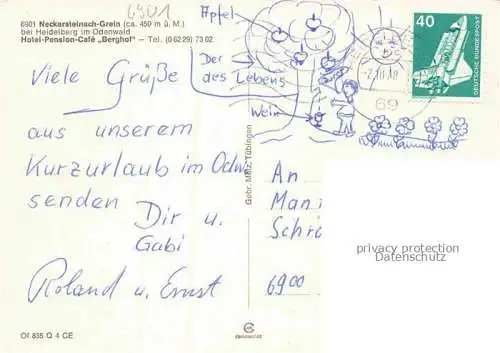 6901
6901 Neckarsteinach-Grein (ca. 450 m ü. M.)
bei Heidelberg im Odenwald
Hotel-Pension-Café „Berghof" — Tel. (0 62 29) 73 02
Apfel
Der
des Lebens
Wein
40
DEUTSCHE BUNDESPOST
69
Viele Grüße
aus unserem
Kurzurlaub im Odw.
senden
Dir u.
Gabi
Roland u. Ernst
Gebr. Metz, Tübingen
An
Man
Schr
6900
privacy protection
Datenschutz
Of 835 Q 4 CE